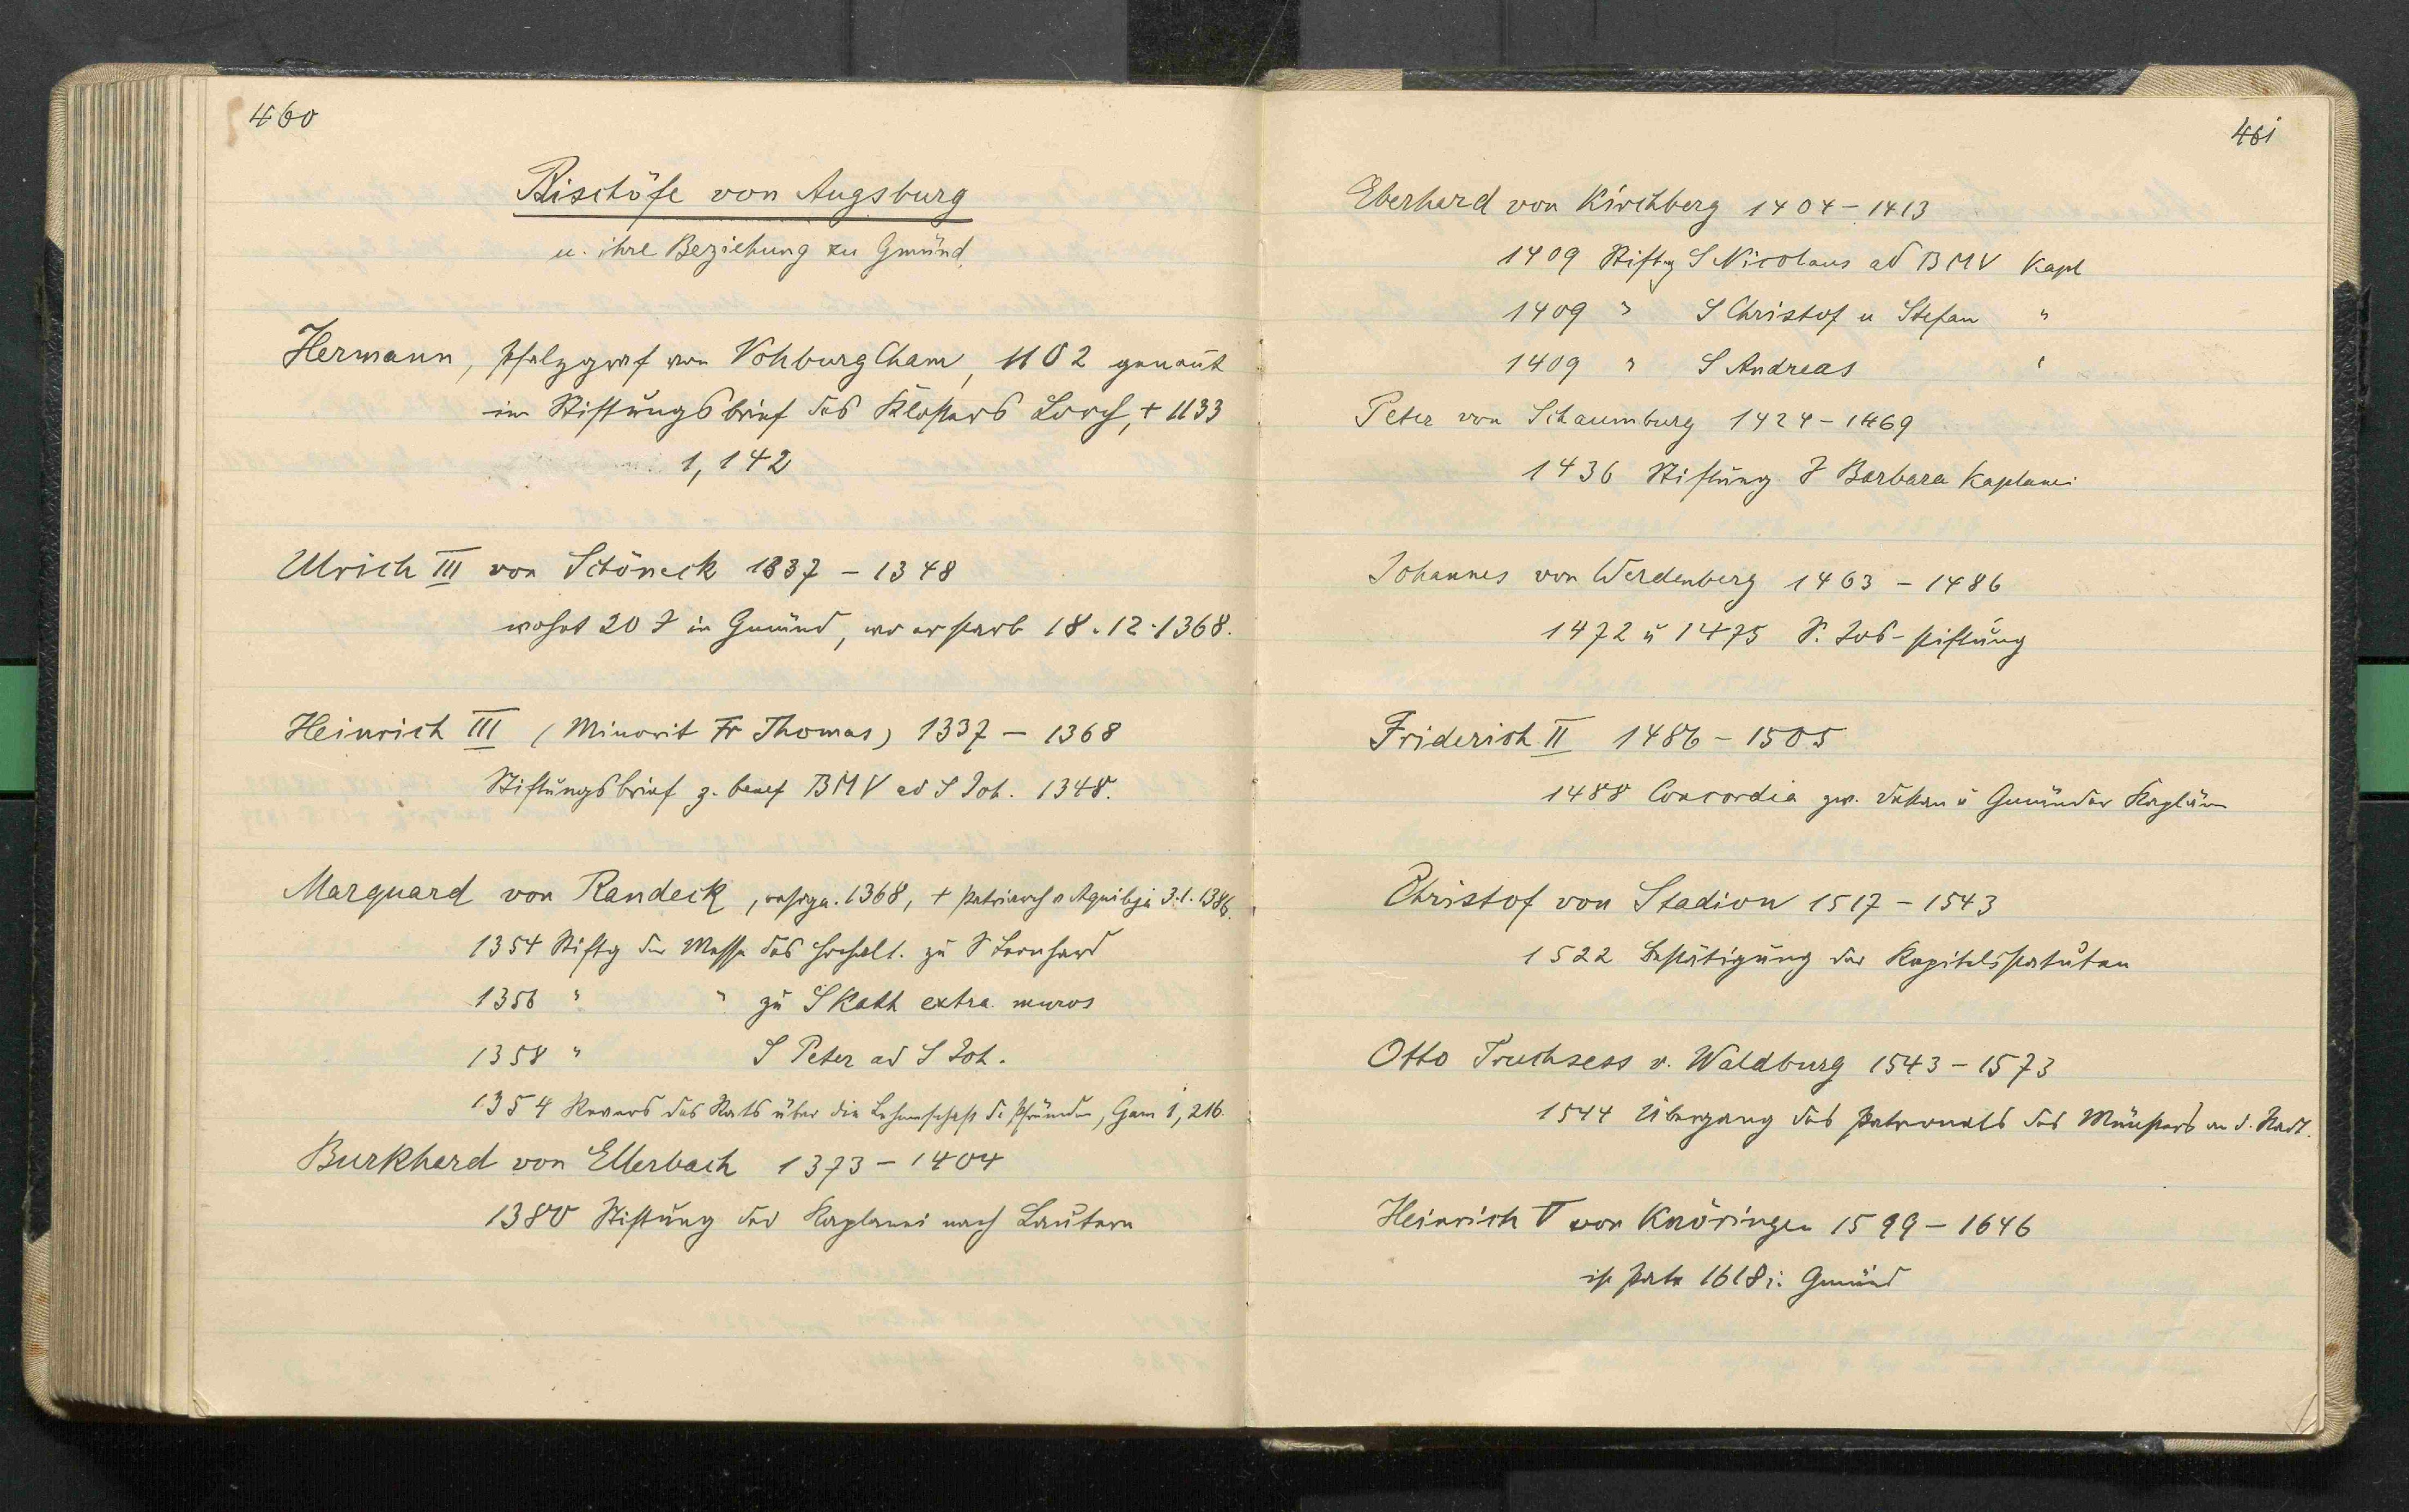 460
Bischöfe von Augsburg
u. ihre Beziehung zu Gmünd.
Hermann, Pfalzgraf von Vohburg Cham, 1102 genannt
im Stiftungsbrief des Klosters Lorch, + 1133
1, 142
Ulrich III von Schöneck 1337 - 1348
wohnt 20 J in Gmünd, wo er starb 18.12.1368.
Heinrich III (Minorit Fr Thomas) 1337 - 1368
Stiftungsbrief z. benef BMV ad S Joh. 1348.
Marquard von Randeck, 1368, + Patriarch v Aquileja 3.1.1386.
1354 Stiftg der Messe des zu S Leonhard
1356 " " zu S Kath extra muros
1358 " S Peter ad S Joh.
1354 Revers des Rats über die Lehenschaft d. Pfründen, Gam 1, 216.
Burkhard von Ellerbach 1373 - 1404
1380 Stiftung der Kaplanei nach Lautern
461
Eberhard von Kirchberg 1404 - 1413
1409 Stiftg S Nicolaus ad BMV Kapl
1409 " S Christof u Stefan "
1409 " S Andreas "
Peter von Schaumburg 1424 - 1469
1436 Stiftung S Barbara Kaplanei
Johannes von Werdenberg 1463 - 1486
1472 u 1475 S. Jos-stiftung
Friderich II 1486 - 1505
1488 Concordia zw. Dekan u Gmünder Kaplän
Christof von Stadion 1517 - 1543
1522 Bestätigung der Kapitelsstatuten
Otto Truchsess v. Waldburg 1543 - 1573
1544 Übergang des Patronats des Münsters an d. Stadt.
Heinrich V von Knöringen 1599 - 1646
1618 i. Gmünd